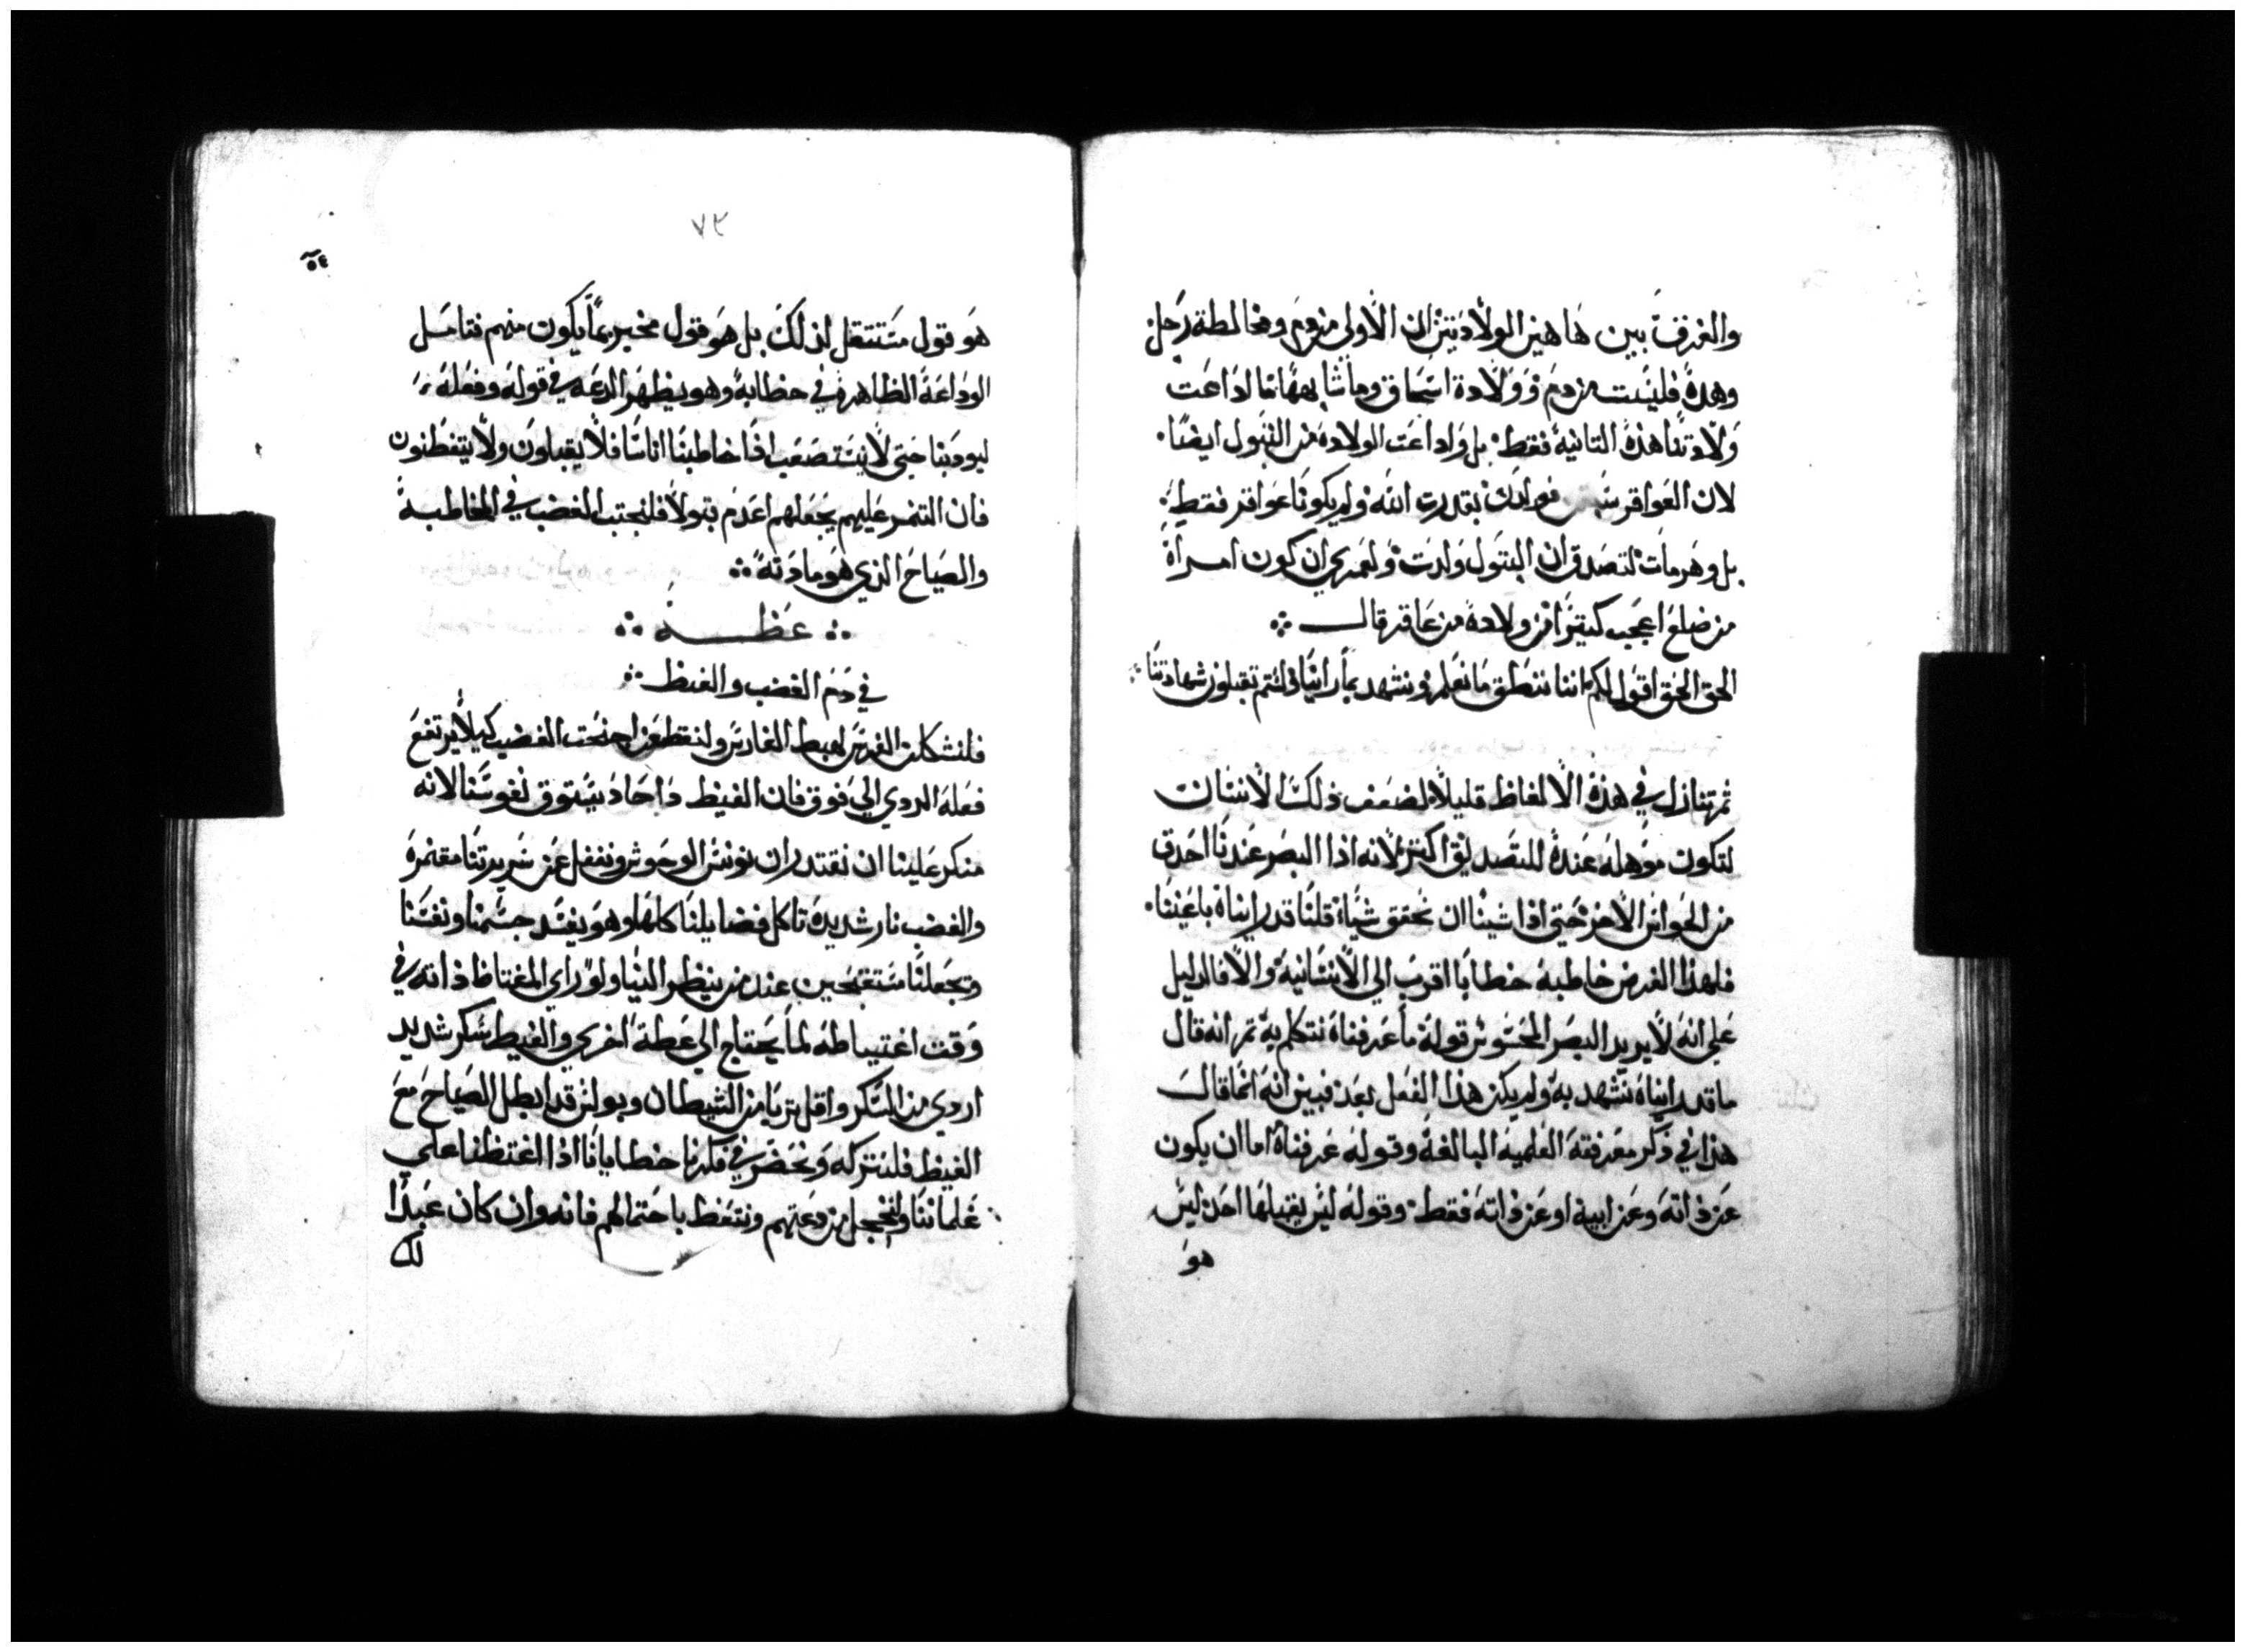 والفرق بين هاهين الولادتين ان الاولى من دم ومخالطة رجل
وهده فليست من دم وولادة اسحاق وما شابهها ما اداعت
ولادتنا هذه التانية فقط بل واداعت الولادة من البتول ايضا
لان العواقر ولدن بقدرت الله ولم يكونا عواقر فقط
بل وهرمات لتصدق ان البتول ولدت ولعمري ان كون امراة
من ضلع اعجب كتيرا من ولادة من عاقر قال
الحق الحق اقول لكم اننا ننطق ما نعلم ونشهد بما راينا ولستم تقبلون شهادتنا
ثم تنازل في هذه الالفاظ قليلا لضعف ذلك الانسان
لتكون موهله عنده للتصديق اكتر لانه اذا البصر عندنا احدق
من الحواس الاخر حتي اذا شينا ان نحقق شيا قلنا قد رايناه باعيننا
فلهذا الغرض خاطبه خطابا اقرب الي الانسانية والا فالدليل
علي انه لا يريد البصر المحسوس قوله ما عرفناه نتكلم به تم انه قال
ما قد رايناه نشهد به ولم يكن هذا الفعل بعد فبين انه انما قال
هذا في ذكر معرفته العلمية البالغة وقوله عرفناه اما ان يكون
عن ذاته وعن ابيه او عن ذاته فقط وقوله ليس يقبلها احد ليس
هو
٧٣
٥٤
هو قول متتقل لذلك بل هو قول مخبر بما يكون منهم فتامل
الوداعة الظاهره في خطابه وهو يظهر الدعه في قوله وفعله
ليودبنا حتي لا نستصعب اذا خاطبنا اناسا فلا يقبلون ولا يتفطنون
فان التنمر عليهم يجعلهم اعدم قبولا فلنجتنب الغضب في المخاطبة
والصياح الذي هو مادته
عظـــة
في دم الغضب والغيظ
فلنشكلن الفرس لهبط الفارس ولنقطعن اجنحت الغضب كيلا يرتفع
فعله الردي الي فوق فان الغيظ دا حاد يستوق نفوسنا لانه
منكر علينا ان نقتدر ان نونس الوحوش ونغفل عن سريرتنا مقنمره
والغضب نار شديده تاكل فضايلنا كلها وهو يفسد جسمنا ونفسنا
وتجعلنا مستقبحين عند من ينظر الينا ولو راي المغتاظ ذاته في
وقت اغتياظه لما يحتاج الي عظة اخري والغيظ سكر شديد
اردي من السكر واقل تربا من الشيطان وبولس قد ابطل الصياح مع
الغيظ فلنتركه ونحضر في فكرنا خطايانا اذا اغتظنا علي
غلماننا ولنخجل من دعتهم ونتعظ باحتمالهم فانه وان كان عبدا
لك